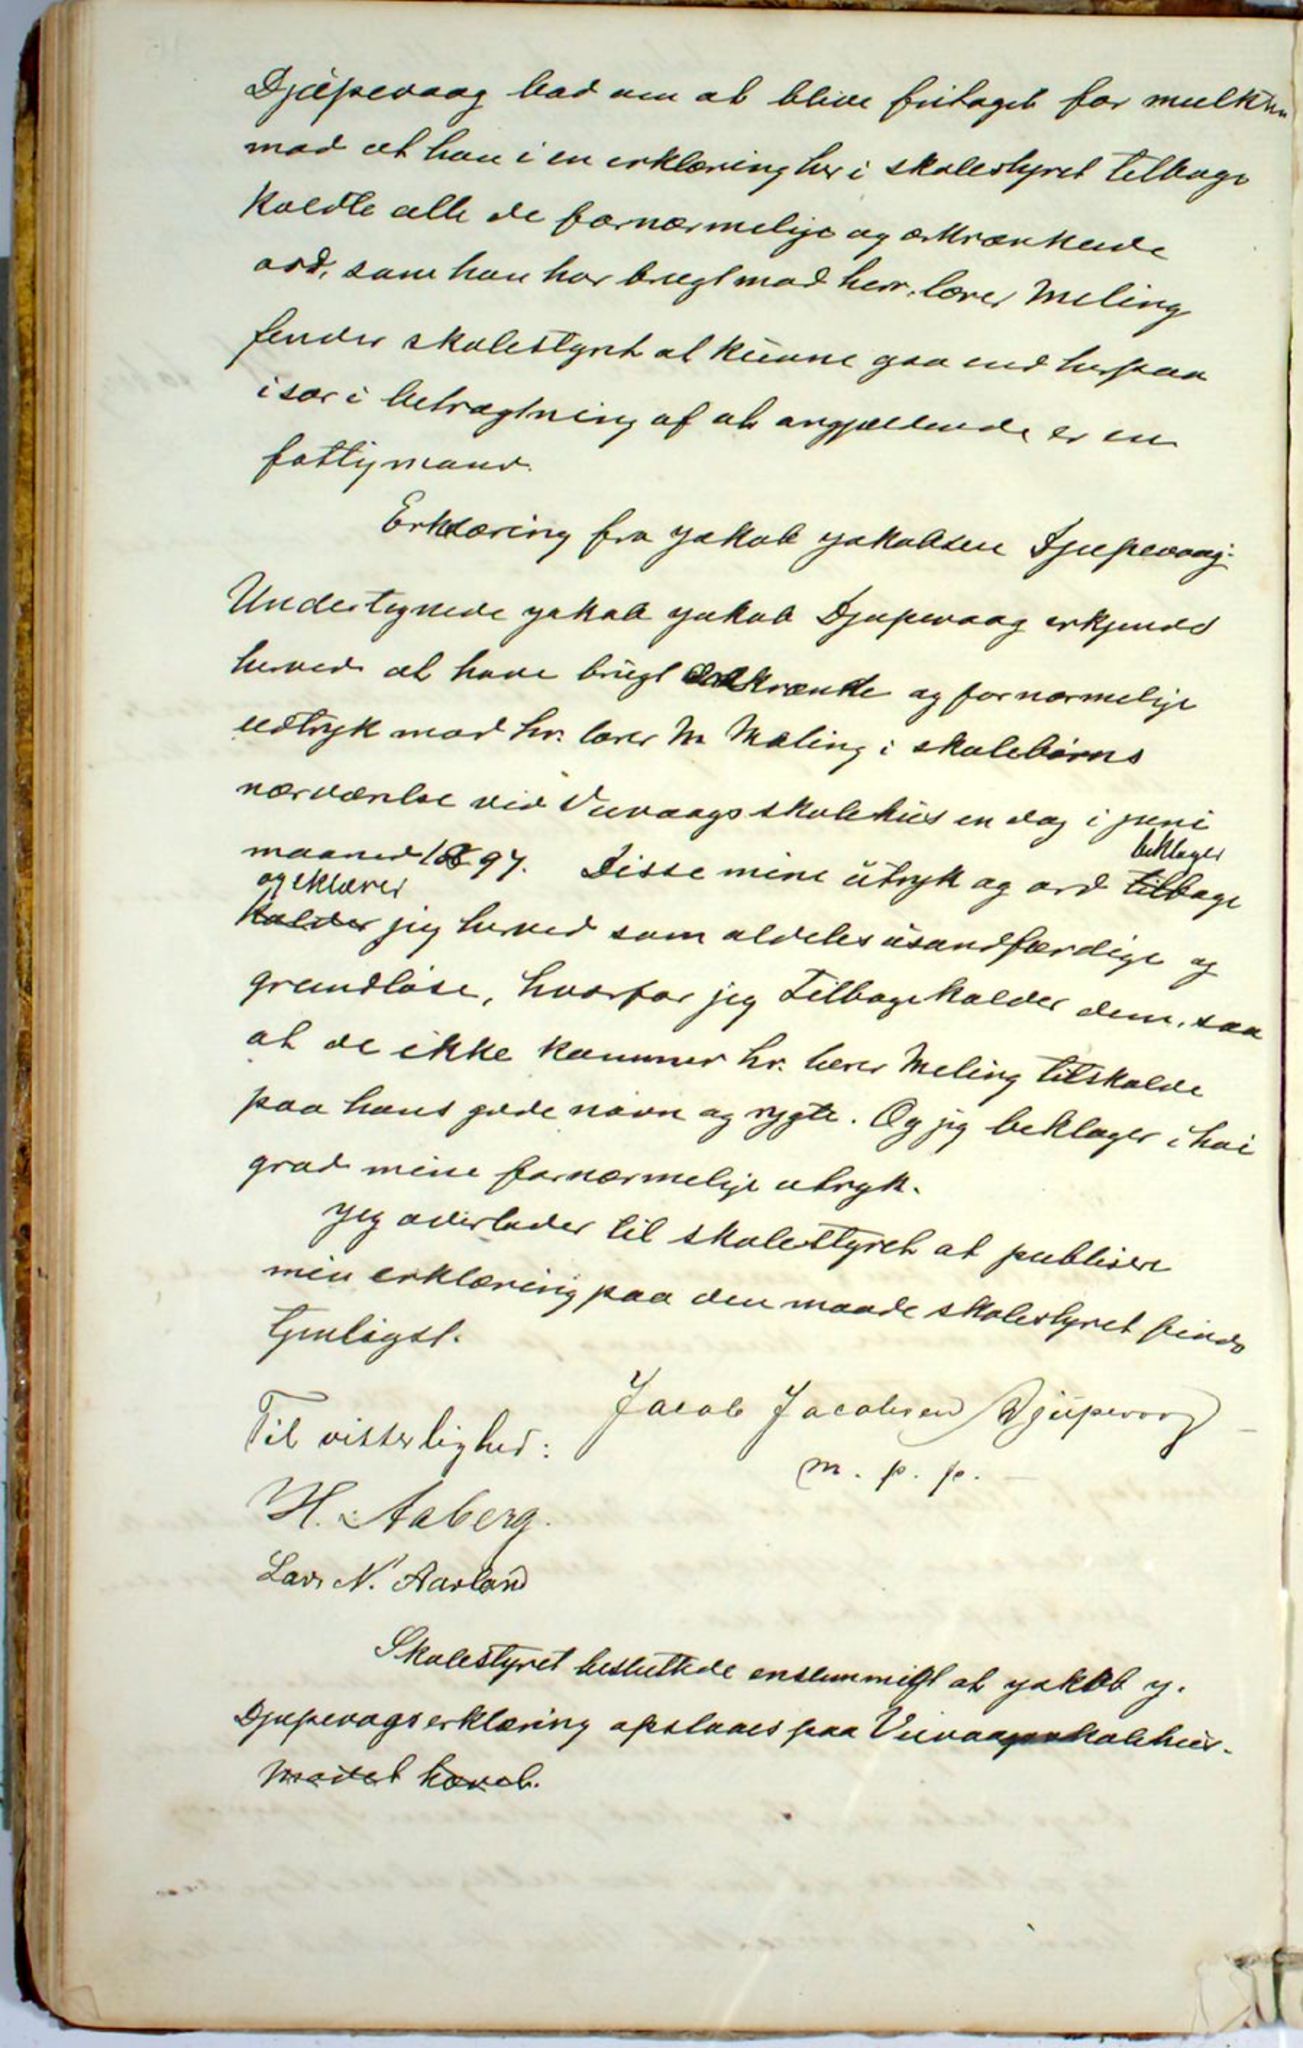 Djupevaag bad om at blive fritaget for mulkten
mod at han i en erklæring her i skolestyret tilbage
kaldte alle de fornærmelige og ærkrænkende
ord, som han har brugt mod herr. lærer Meling
finder skolestyret at kunne gaa ind herpaa
især i betragtning af at angjældende er en
fattigmand.
Erklæring fra Jakob Jakobsen Djupevaag.
Undertegnede Jakob Jakob Djupevaag erkjender
herved at have brugt ærekrænke og fornærmelige
udtryk mod hr. lærer M Meling i skolebørns
nærværelse ved Vivaags skolehus en dag i juni
beklager
maaned 1897. Disse mine utryk og ord tilbage
og eklærer
kalder jeg herved som aldeles usandfærdige og
grundløse, hvorfor jeg tilbagekalder dem, saa
at de ikke kommer hr. lærer Meling tilskade
paa hans gode navn og rygte. Og jeg beklager i høi
grad mine fornærmelige utryk.
Jeg overlader til skolestyret at publisere
min erklæring paa den maade skolestyret finder
tjenligst.
Jacob Jacobsen Djupevaag
Til visterlighed:
m. p. p.
H. Aaberg.
Lars N. Aarland
Skolestyret besluttede enstemmigt at Jakob J.
Djupevags erklæring opslaaes paa Vivaagsskolehus.
Mødet hævet.